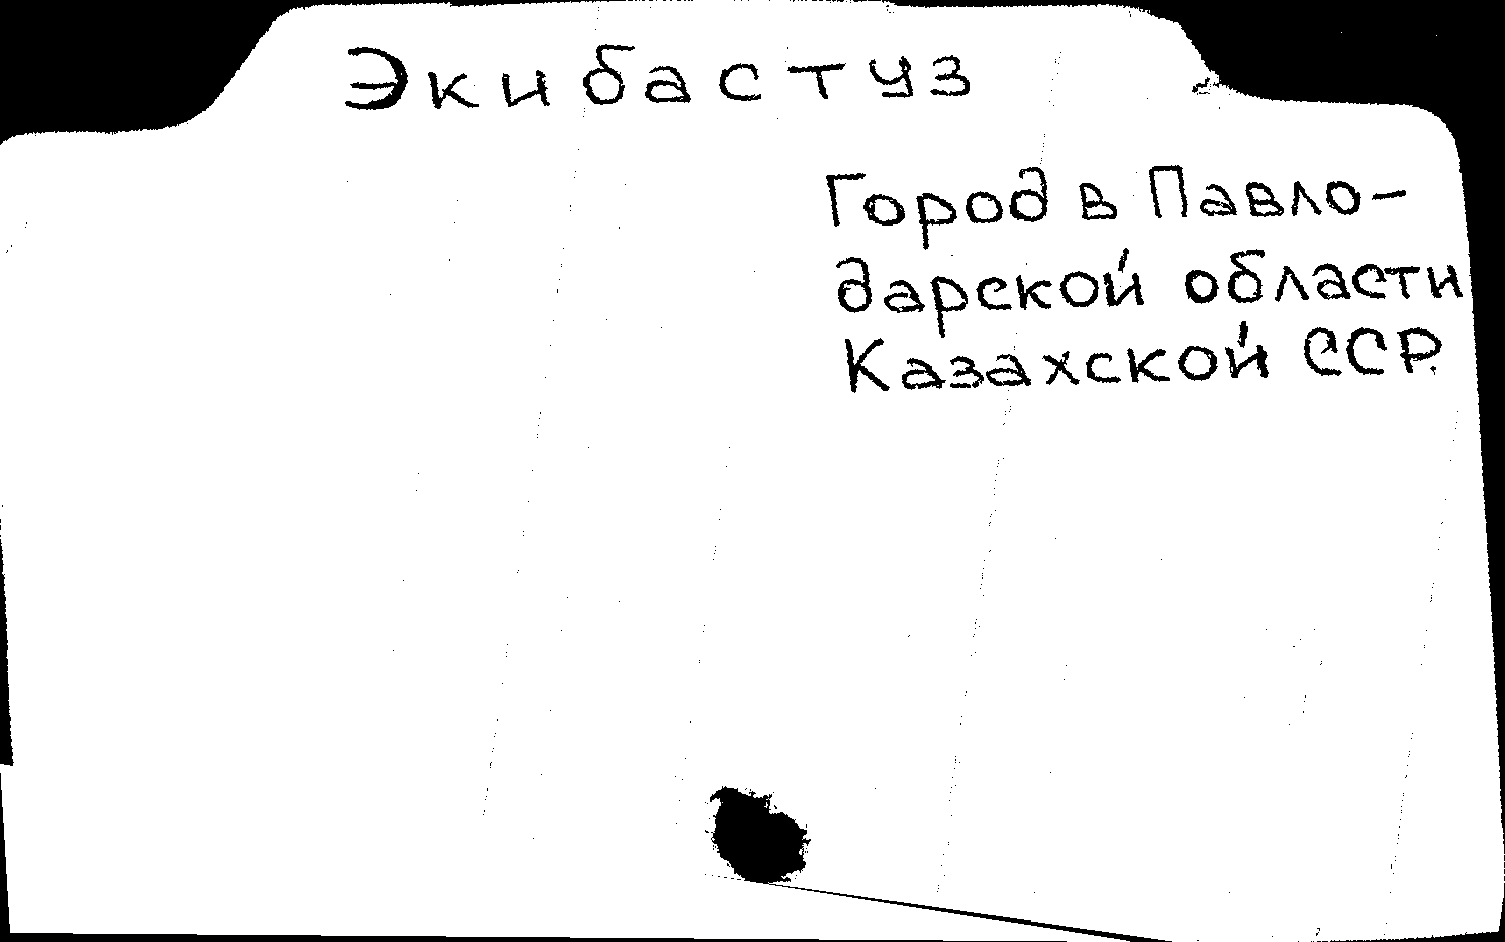 Экибастуз
Город в Павло-
дарской области
Казахской ССР.